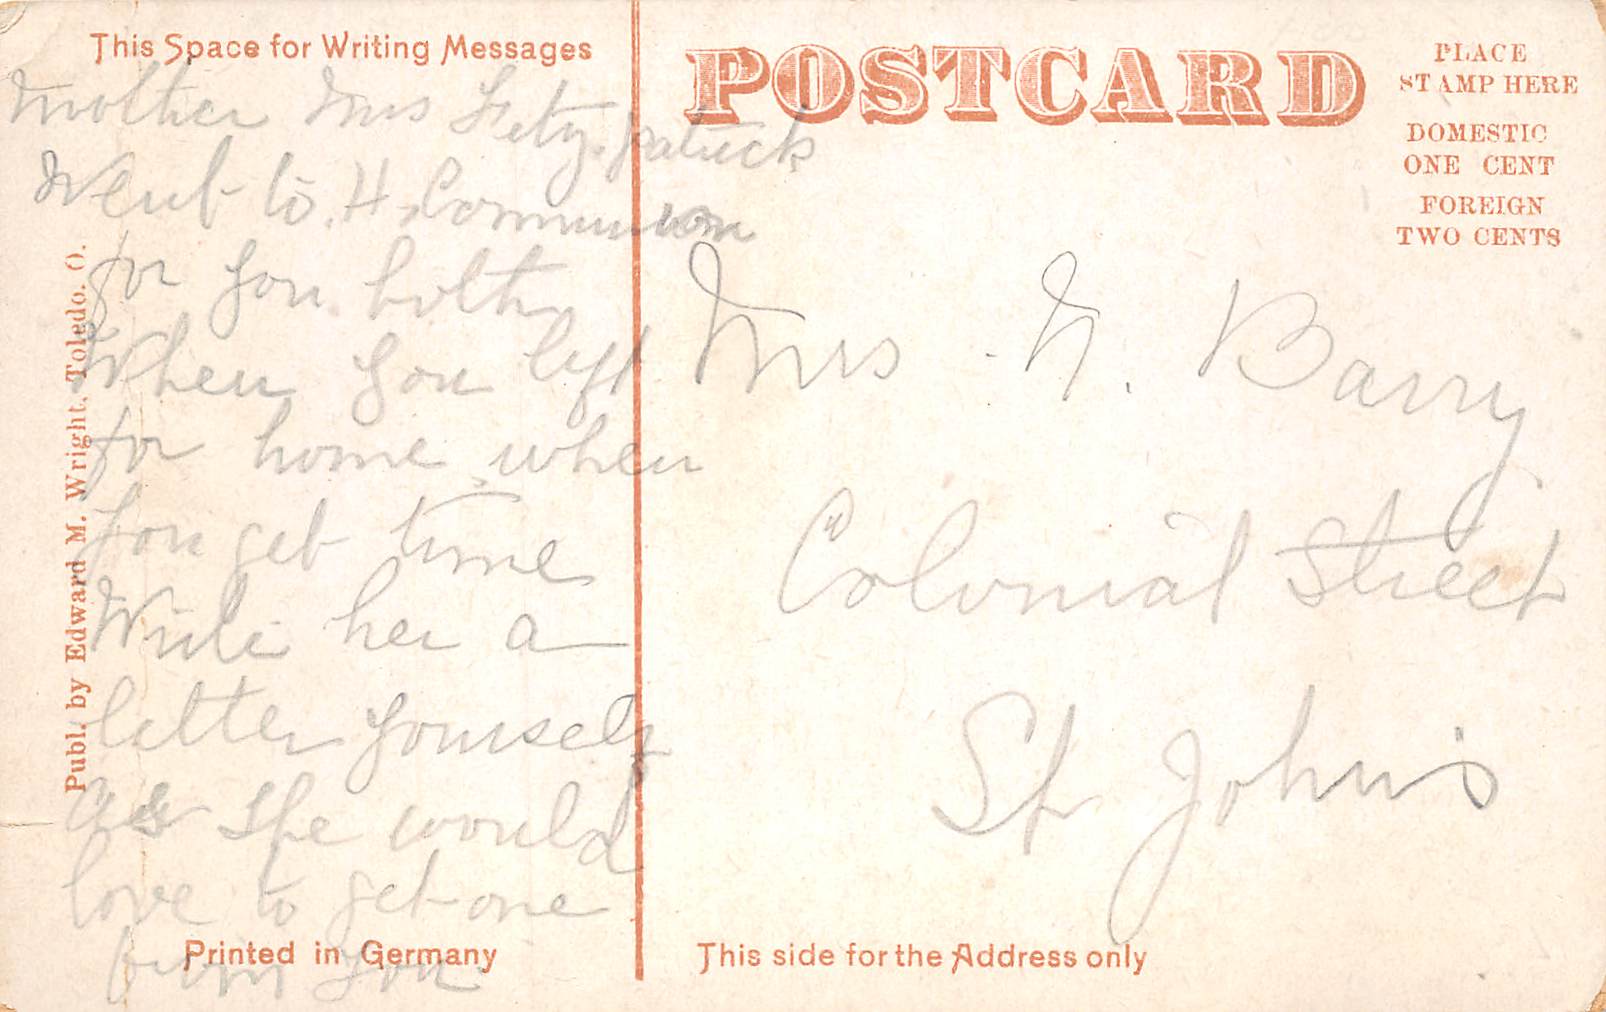 This Space for Writing Messages
Mother Mrs Fitzpatrick
Went to H. Communion
for you both
When you left
for home when
you get time
Write her a
letter yourself
as she would
love to get one
from you
Publ. by Edward M. Wright, Toledo. O.
Printed in Germany
POSTCARD
PLACE
STAMP HERE
DOMESTIC
ONE CENT
FOREIGN
TWO CENTS
Mrs N. Barry
Colonial Street
St John's
This side for the Address only